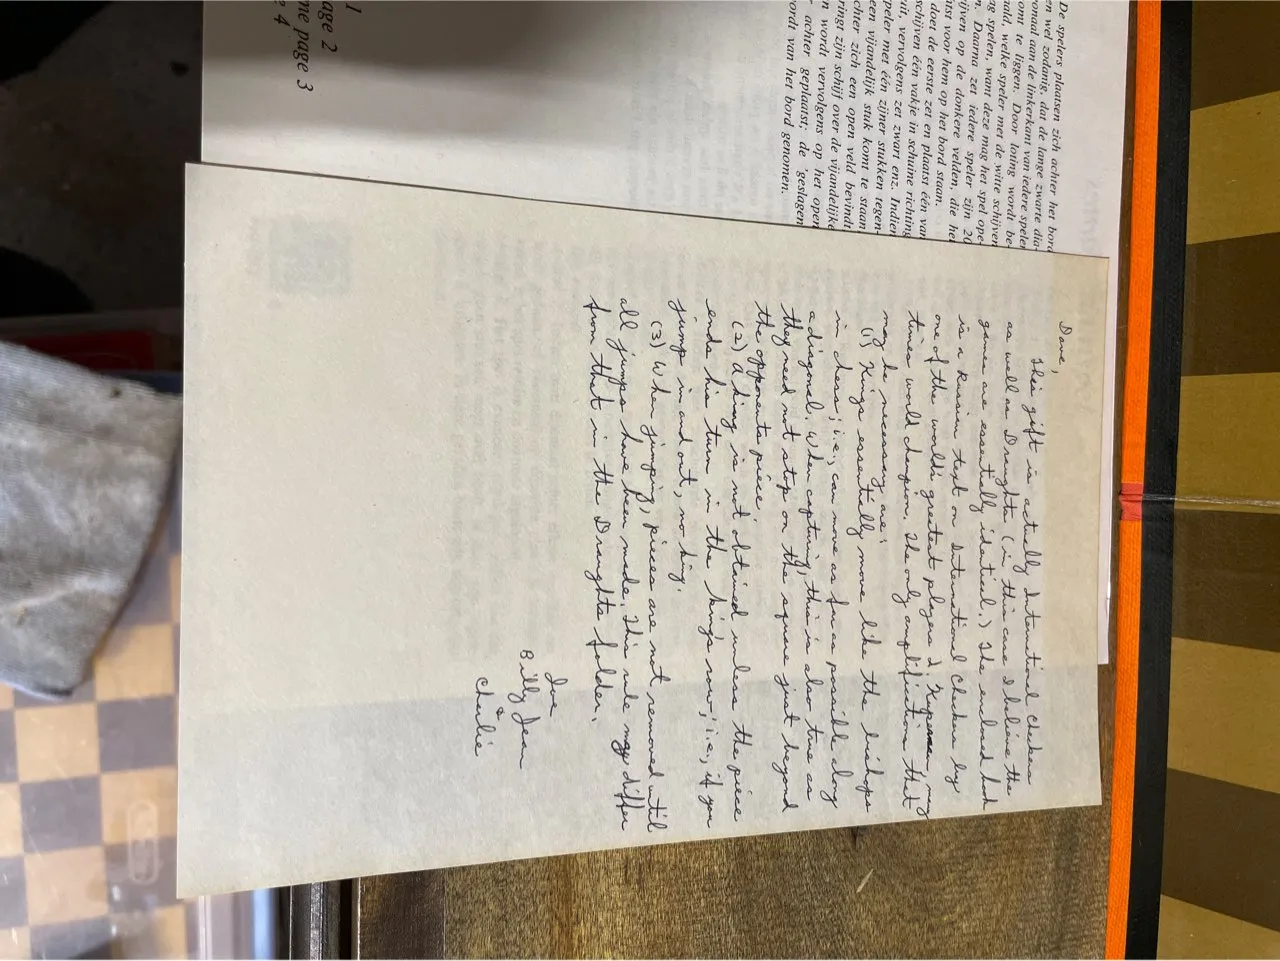 1
age 2
me page 3
e 4
De spelers plaatsen zich achter het bord
en wel zodanig, dat de lange zwarte dia-
onaal aan de linkerkant van iedere speler
omt te liggen. Door loting wordt be-
aald, welke speler met de witte schijven
ag spelen, want deze mag het spel ope
n. Daarna zet iedere speler zijn 20
ijven op de donkere velden, die he
tst voor hem op het bord staan.
doet de eerste zet en plaatst één van
schijven één vakje in schuine richting
uit, vervolgens zet zwart enz. Indien
peler met één zijner stukken tegen-
een vijandelijk stuk komt te staan
chter zich een open veld bevindt
ringt zijn schijf over de vijandelijke
n wordt vervolgens op het open
achter geplaatst; de geslagen
ordt van het bord genomen.
Dave,
This gift is actually International Checkers
as well as Draughts (in this case I believe the
games are essentially identical.) The enclosed book
is a Russian text on International Checkers by
one of the world's greatest players I. Kuperman, my
times world champion. The only amplification that
may be necessary are:
(1) Kings essentially move like the bishops
in chess; i.e., can move as far as possible along
a diagonal. When capturing, this is also true as
they need not stop on the square just beyond
the opponents piece.
(2) A king is not obtained unless the piece
ends his turn in the king's row; i.e., if you
jump in and out, no king.
(3) When jumping, pieces are not removed until
all jumps have been made. This rule may differ
from that in the Draughts folder.
Love
Billy Jean
&
Charlie